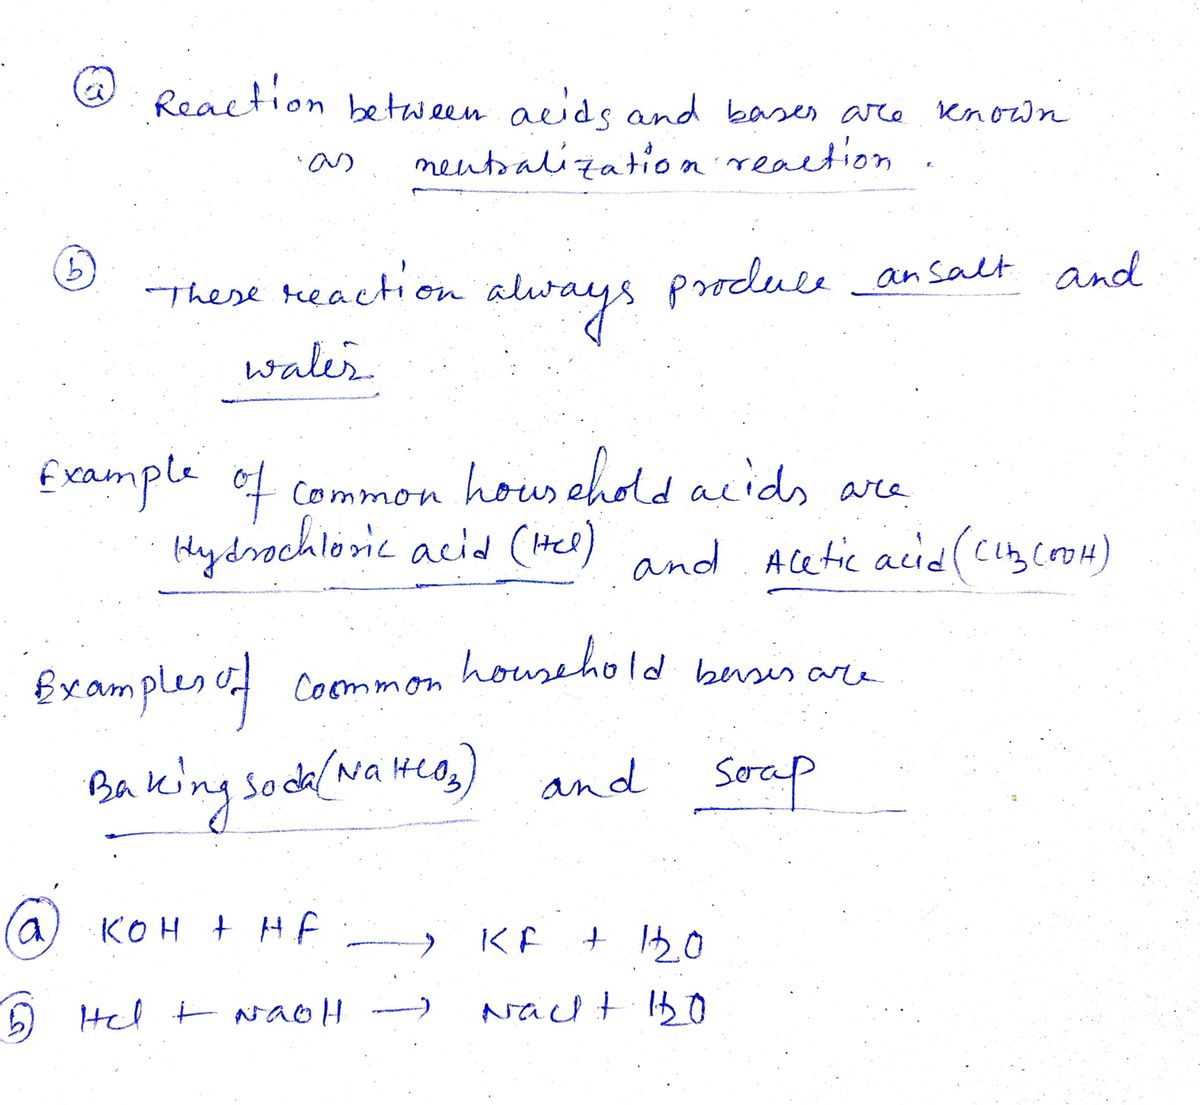 (a) Reaction between acids and bases are known
as neutralization reaction.
(b) These reaction always produce an salt and
water
Example of common household acids are
Hydrochloric acid (HCl) and Acetic acid (CH3COOH)
Examples of common household bases are
Baking soda (NaHCO3) and Soap
(a) KOH + HF → KF + H2O
(b) HCl + NaOH → NaCl + H2O